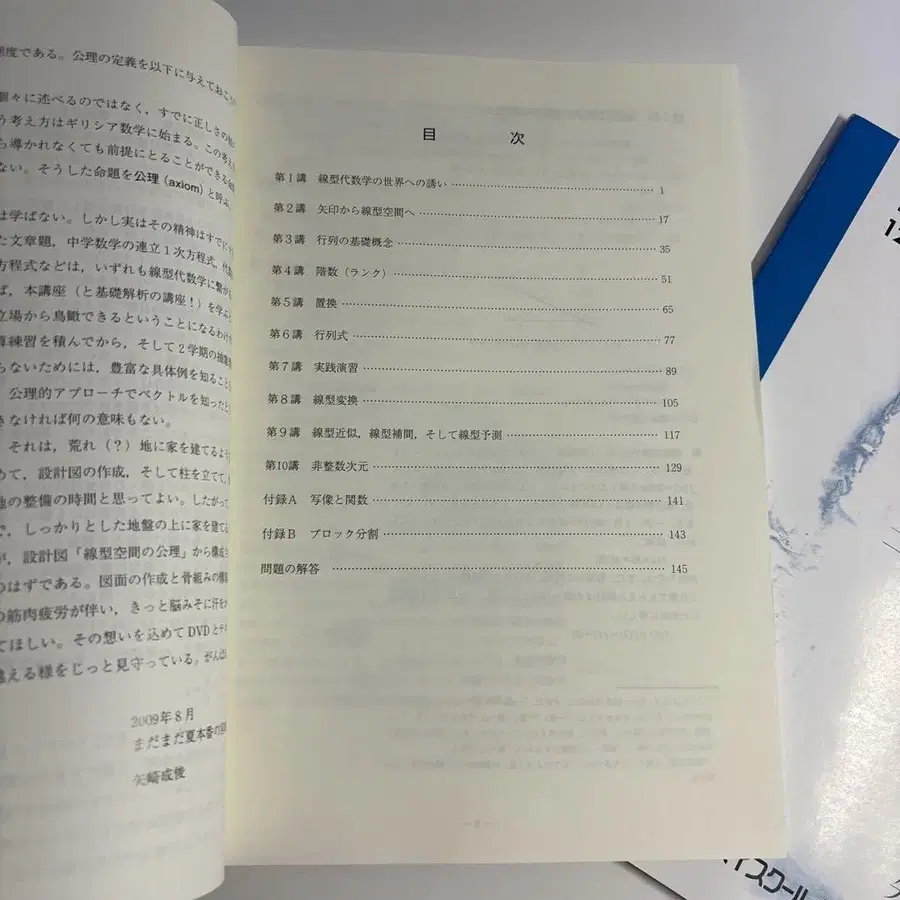 度である。公理の定義を以下に与えておこう
々に述べるのではなく，すでに正しさの
う考え方はギリシア数学に始まる。この考え
ら導かれなくても前提にとることができる
ない。そうした命題を公理（axiom）と呼ぶ
は学ばない。しかし実はその精神はすでに
た文章題，中学数学の連立1次方程式，
方程式などは，いずれも線型代数学に繋が
ば，本講座（と基礎解析の講座！）を学ぶ
立場から鳥瞰できるということになるわけ
算練習を積んでから，そして2学期の抽象
らないためには，豊富な具体例を知ること
公理的アプローチでベクトルを知ったと
きなければ何の意味もない。
それは，荒れ（？）地に家を建てるよう
めて，設計図の作成，そして柱を立てて，
地の整備の時間と思ってよい。したがって
で，しっかりとした地盤の上に家を建て
が，設計図「線型空間の公理」から構成
のはずである。図面の作成と骨組みの
の筋肉疲労が伴い，きっと脳みそに汗を
てほしい。その想いを込めてDVDとテ
える様をじっと見守っている。がんば
2009年8月
まだまだ夏本番の
矢崎成俊
目　次
第1講　線型代数学の世界への誘い 1
第2講　矢印から線型空間へ 17
第3講　行列の基礎概念 35
第4講　階数（ランク） 51
第5講　置換 65
第6講　行列式 77
第7講　実践演習 89
第8講　線型変換 105
第9講　線型近似，線型補間，そして線型予測 117
第10講　非整数次元 129
付録A　写像と関数 141
付録B　ブロック分割 143
問題の解答 145
12
スクール